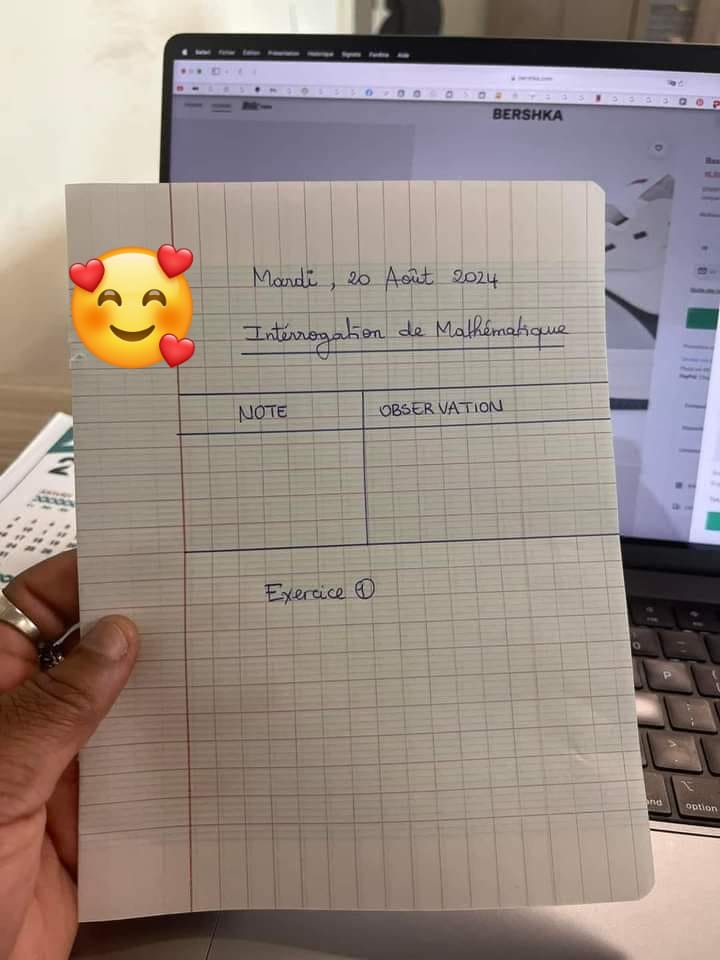 Safari Fichier Édition Présentation Historique Signets Fenêtre Aide
bershka.com
BERSHKA
Mardi, 20 Août 2024
Intérrogation de Mathématique
NOTE OBSERVATION
Exercice ①
P
option